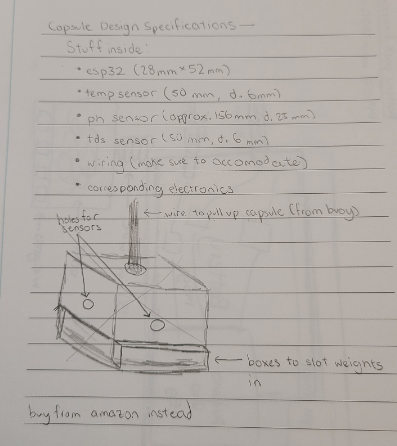 Capsule Design Specifications —
Stuff inside:
• esp32 (28mm × 52mm)
• temp sensor (50 mm, d. 6mm)
• ph sensor (approx. 150mm, d. 25 mm)
• tds sensor (50 mm, d. 6 mm)
• wiring (make sure to accomodate)
• corresponding electronics
holes for
sensors
wire to pull up capsule (from buoy)
boxes to slot weights
in
buy from amazon instead